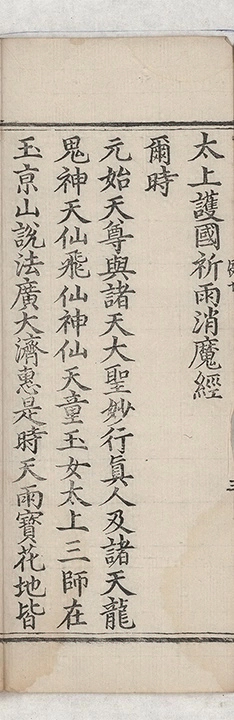 太上護國祈雨消魔經
爾時
元始天尊與諸天大聖妙行眞人及諸天龍
鬼神天仙飛仙神仙天童王女太上三師在
玉京山說法廣大濟惠是時天雨寶花地皆